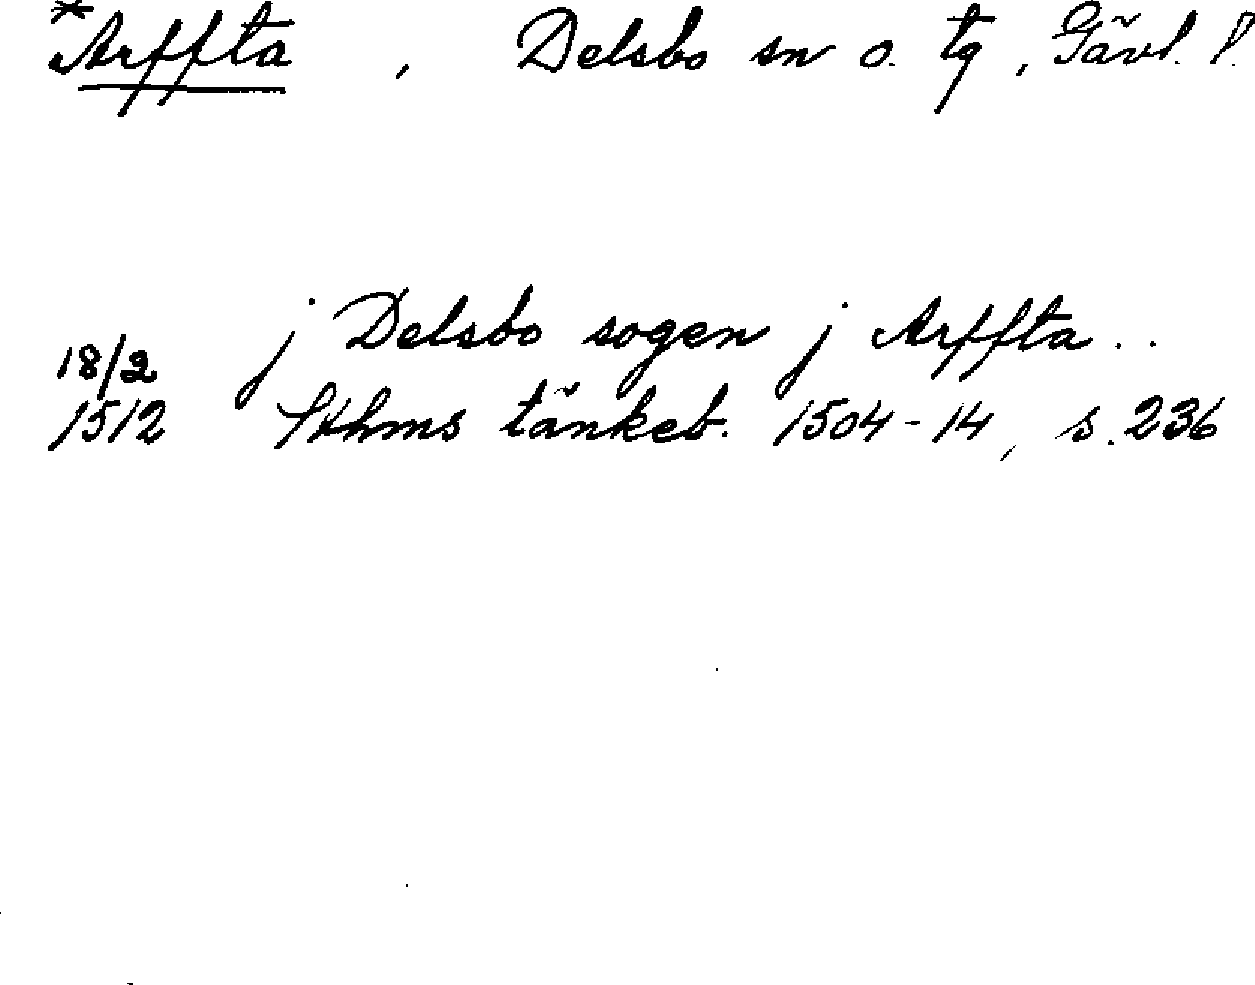 *Arffta , Delsbo sn o. tg, Gävl. l.
j Delsbo sogen j Arffta ..
18/2
1512 Sthms tänkeb. 1504-14, s. 236